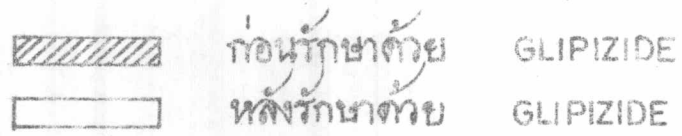 ก่อนรักษาด้วย GLIPIZIDE
หลังรักษาด้วย GLIPIZIDE